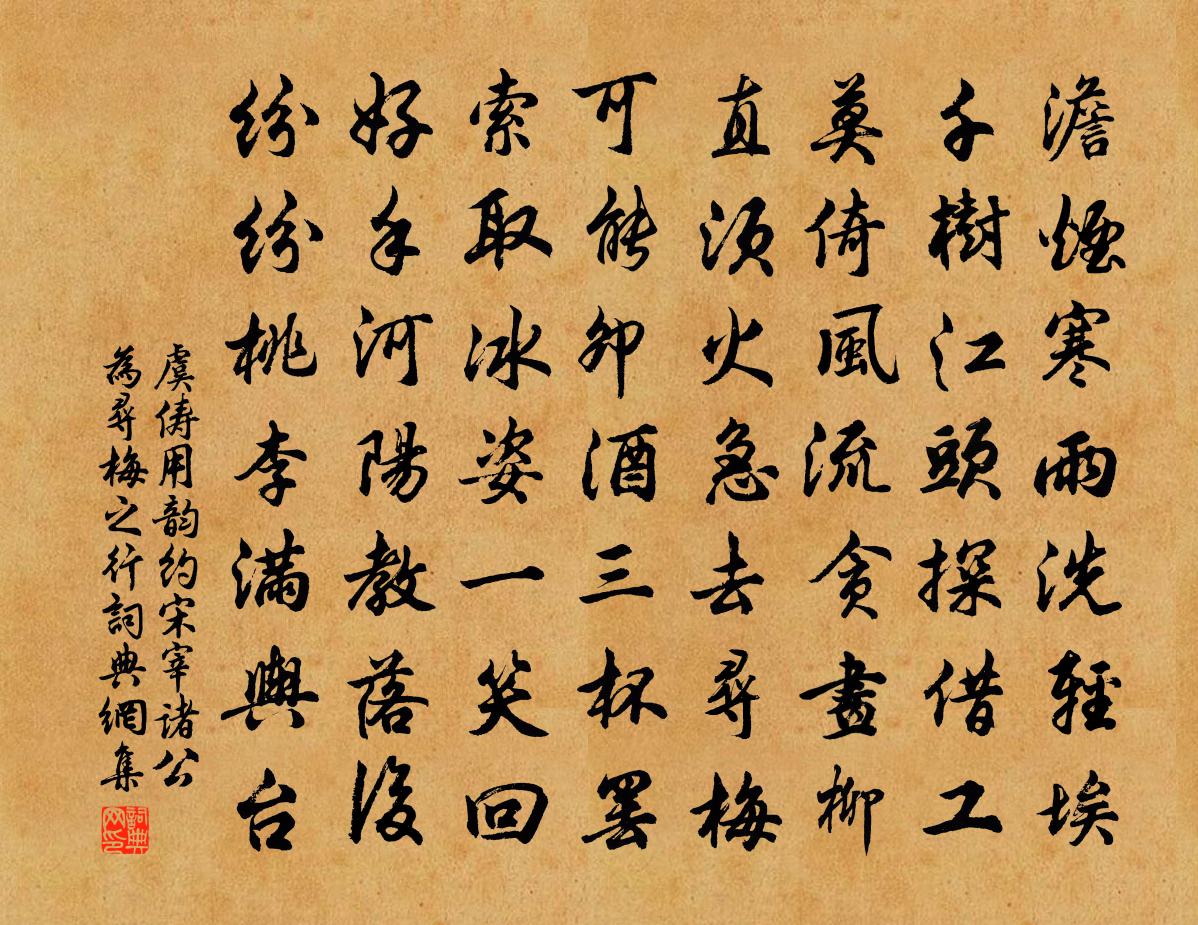 澹煙寒雨洗輕埃
千樹江頭探借工
莫倚風流貪畫柳
直須火急去尋梅
可能卯酒三杯罢
索取冰姿一笑回
好手河陽教落後
紛紛桃李滿輿台
虞儔用韵約宋宰诸公
為尋梅之行詞典網集
詞典
网印